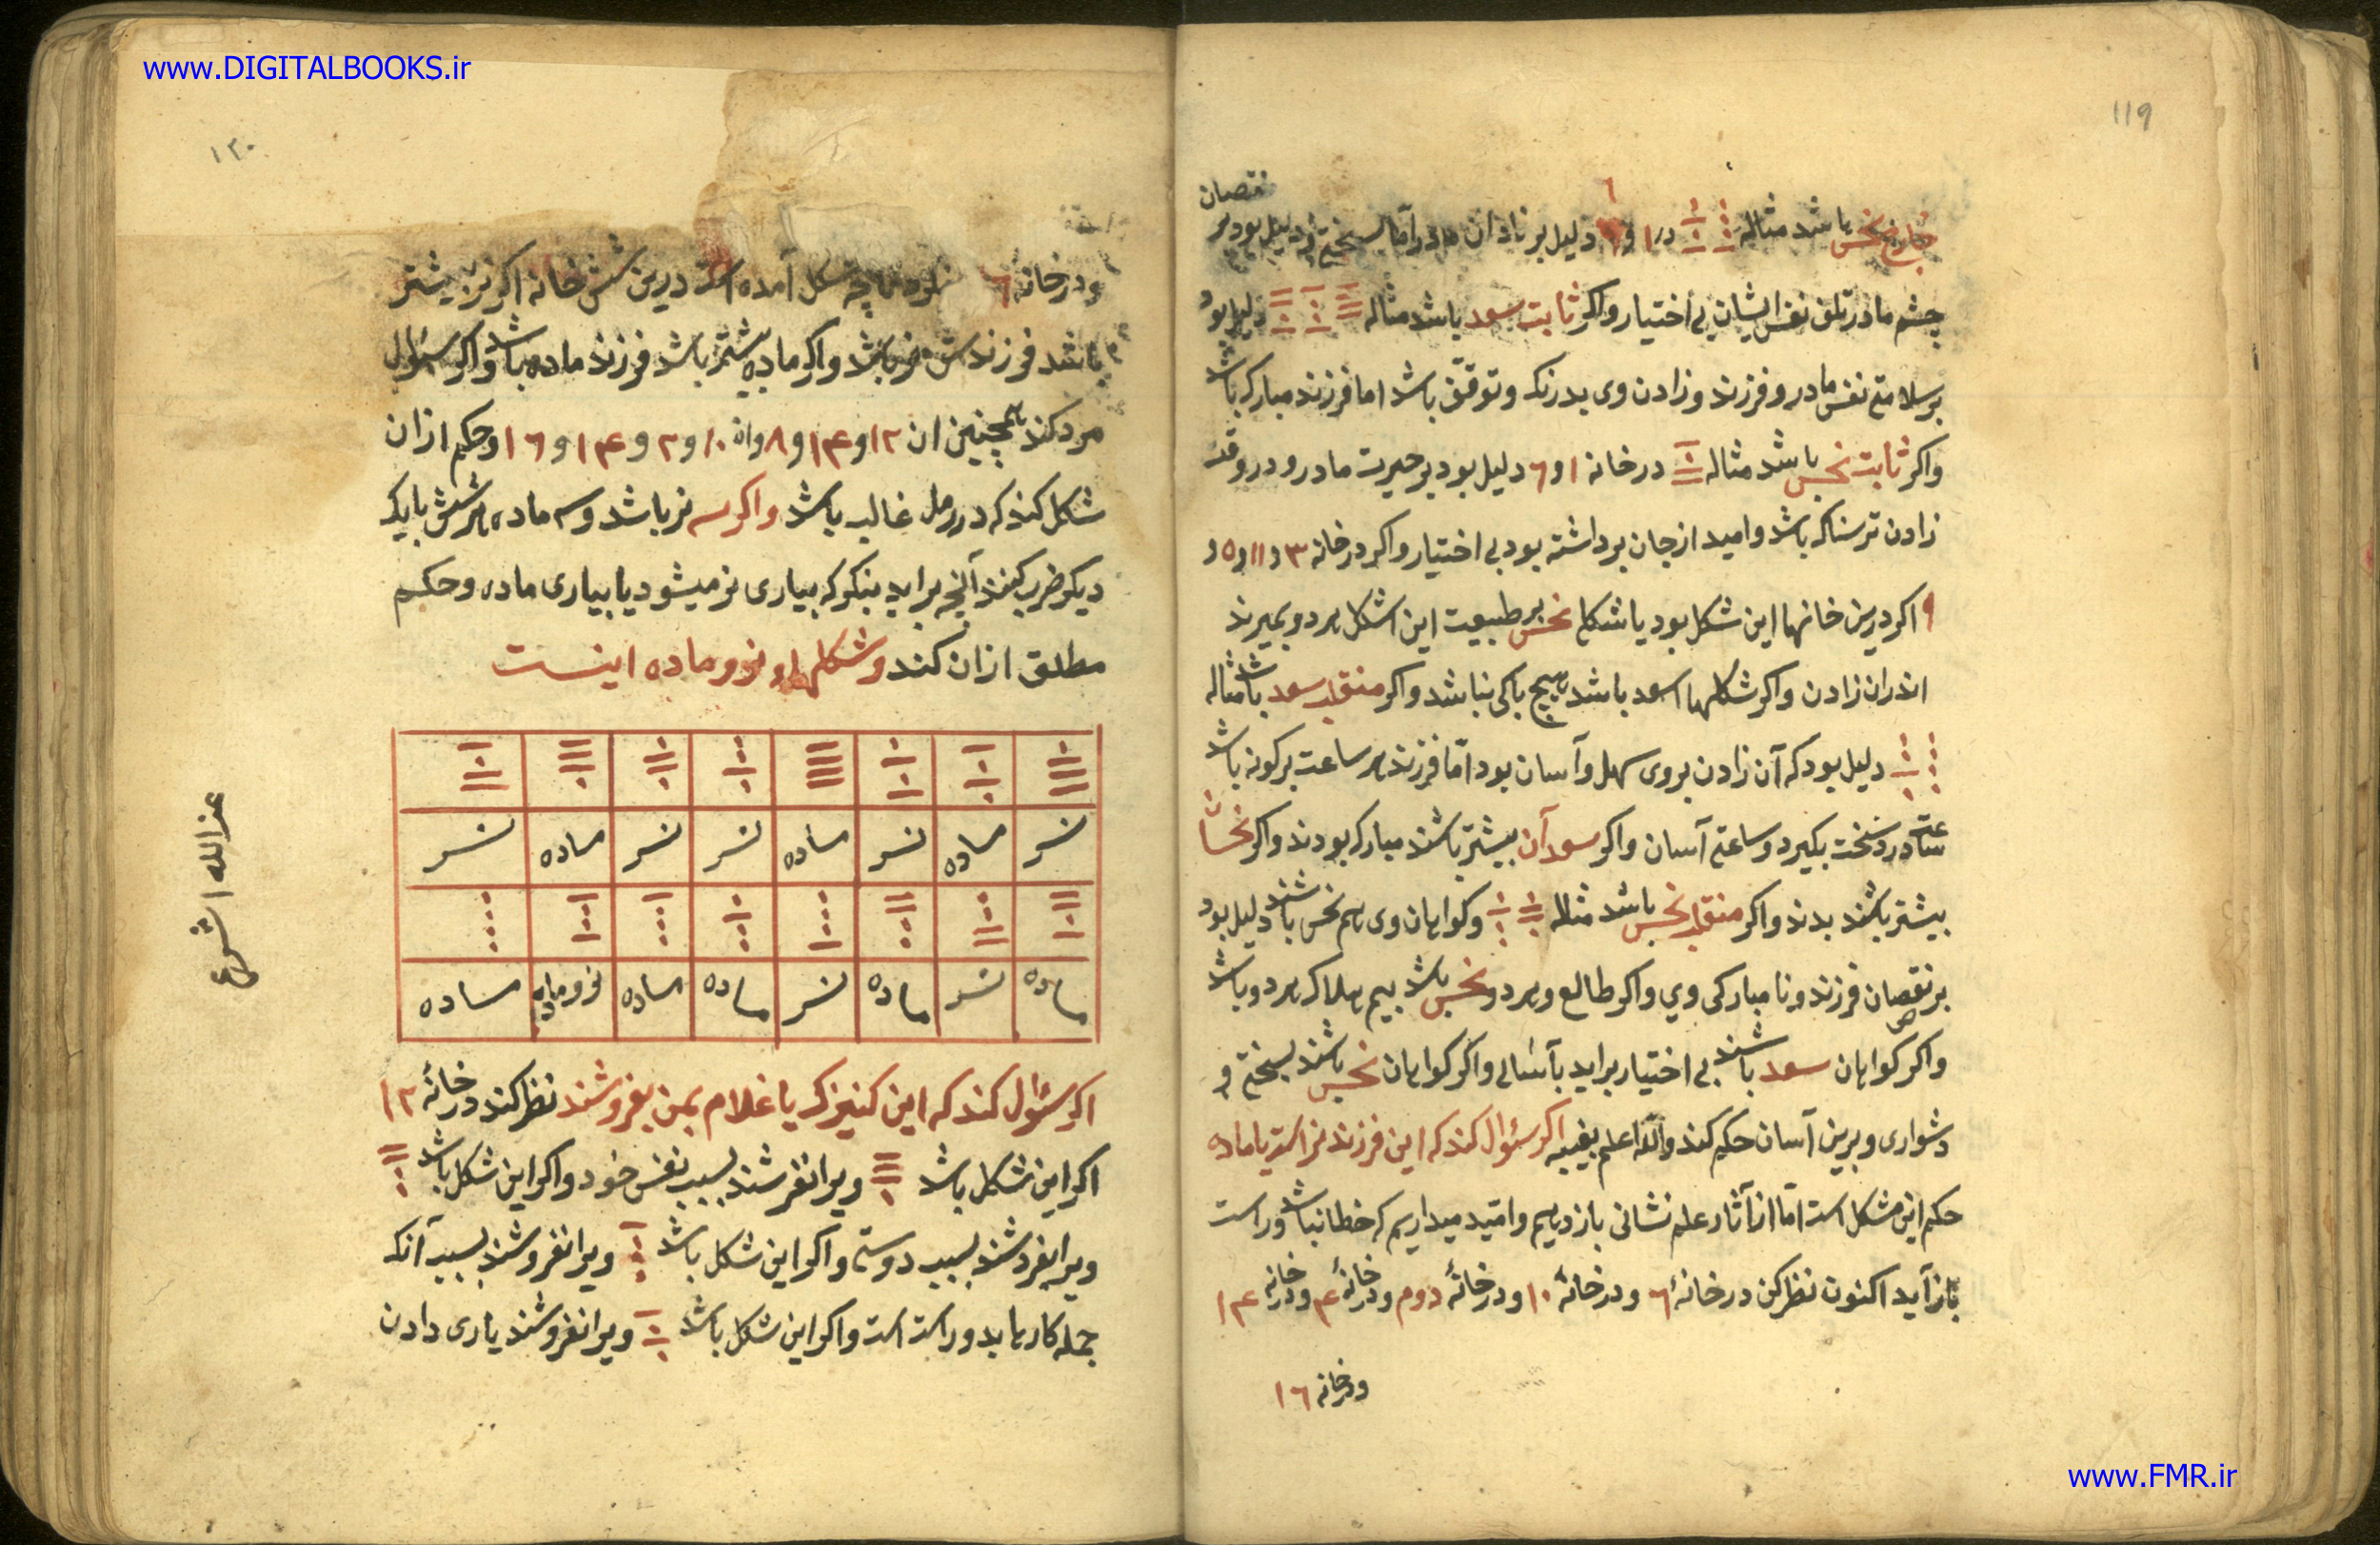 www.DIGITALBOOKS.ir
۱۱۹
نقصان
خارج نحس باشد مثاله در ۱ و ۶ دلیل بر نادان مادر اما بسختی و دلیل بود بر
چشم مادر تلف نفس ایشان بی اختیار واکر ثابت سعد باشد مثاله دلیل بود
بر سلامتی نفس مادر و فرزند و زادن وی بدرنک و توقف باشد اما فرزند مبارک باشد
واکر ثابت نحس باشد مثاله در خانه ۱ و ۶ دلیل بود بر حیرت مادر و در وقت
زادن ترسناک باشد و امید از جان برداشته بود بی اختیار واکر در خانه ۳ و ۱۱ و ۵ و
۹ اکر درین خانها این شکل بود یا شکل نحس بر طبیعت این اشکل هر دو بمیرند
اندران زادن واکر شکلها سعد باشد هیچ باکی نباشد واکر منقلب سعد باشد مثاله
دلیل بود که آن زادن بروی سهل و آسان بود اما فرزند هر ساعت برکونه باشد
ساعتی درد سخت بکیرد و ساعتی آسان واکر سعد آن بیشتر باشند مبارک بودند واکر نحسان
بیشتر باشند بدند واکر منقلب نحس باشد مثاله وکواهان وی هم نحس باشند دلیل بود
بر نقصان فرزند و نامبارکی وی واکر طالع و هر دو نحس باشد بیم هلاک هر دو باشد
واکر کواهان سعد باشند بی اختیار براید بآسانی واکر کواهان نحس باشند بسختی و
دشواری و برین آسان حکم کند والله اعلم بغیبه اکر سئوال کند که این فرزند نر است یا ماده
حکم این مشکل است اما از آثار علم نشانی بازدهیم و امید میداریم که خطا نباشد و راست
باز آید اکنون نظر کن در خانهٔ ۶ و در خانهٔ ۱۰ و در خانهٔ دوم و در خانهٔ ۴ و در خانه ۱۴
و در خانه ۱۶
۱۲۰
و در خانهٔ ۶ تا چه شکل آمده است درین شش خانه اکر نر بیشتر
باشد فرزندش نر باشد واکر ماده بیشتر باشد فرزند ماده باشد واکر سئوال
مرد کند همچنین از ان ۱۲ و ۱۴ و ۸ و از ۱۰ و ۲ و ۱۴ و ۱۶ و حکم ازان
شکل کند که در رمل غالب باشد واکر سه نر باشد و سه ماده هر شش با یک
دیکر ضرب کنند آنچه براید بنکر که بیاری نر میشود یا بیاری ماده و حکم
مطلق ازان کند و شکلها و نر و ماده اینست
نر ماده نر ماده نر نر ماده نر
ماده نر ماده نر ماده ماده نر و ماده ماده
اکر سئوال کند که این کنیزک یا غلام بمن بفروشند نظر کند در خانهٔ ۱۲
اکر این شکل باشد ویرا نفرشند بسبب نفس خود واکر این شکل باشد
ویرا بفرشند بسبب دوستی واکر این شکل باشد ویرا نفروشند بسبب آنکه
جمله کارها بدو راست است واکر این شکل باشد ویرا نفروشند یاری دادن
www.FMR.ir